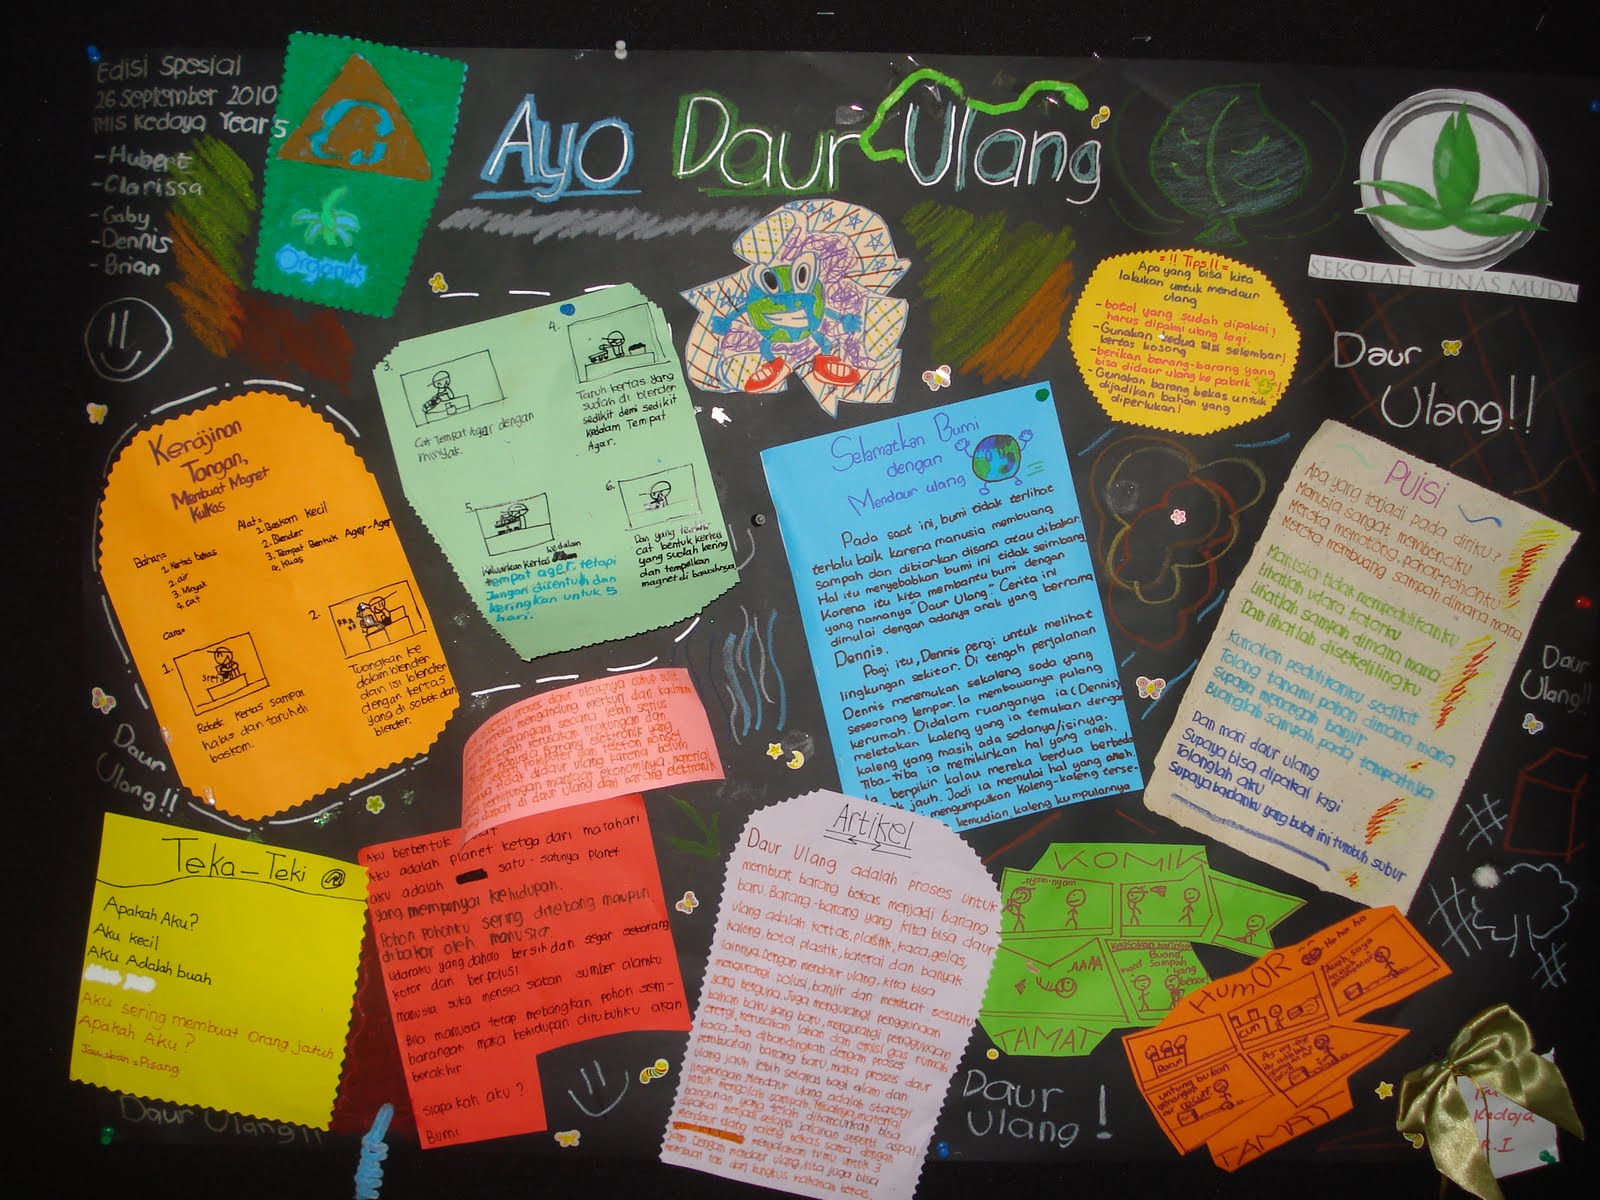 Edisi Spesial
26 September 2010
THIS Kedoya Year 5
- Hubert
- Clarissa
- Gaby
- Dennis
- Brian
Organik
Ayo Daur Ulang
SEKOLAH TUNAS MUDA
= !! Tips !! =
Apa yang bisa kita
lakukan untuk mendaur
ulang
- botol yang sudah dipakai,
harus dipakai ulang lagi.
- Gunakan kedua sisi selembar
kertas kosong
- berikan barang-barang yang
bisa didaur ulang ke pabrik
- Gunakan barang bekas untuk
dijadikan bahan yang
diperlukan!
Daur
Ulang!!
Kerajinan
Tangan,
Membuat Magnet
Kulkas
Bahan=
1. Kertas bekas
2. air
3. Minyak
4. cat
Alat=
1. Baskom kecil
2. Blender
3. Tempat Bentuk Ager-Ager
4. Kuas
Cara=
1.
Robek kertas sampai
habis dan taruh di
baskom.
2.
Tuangkan ke
dalam blender
dan isi blender
dengan kertas
yang di sobek dan
blender.
3.
Cat Tempat Agar dengan
minyak.
4.
Taruh kertas yang
sudah di blender
sedikit demi sedikit
kedalam Tempat
Agar.
5.
Keluarkan kertas kedalam
tempat ager, tetapi
Jangan disentuh dan
keringkan untuk 5
hari.
6.
Dan yang terakhir
cat bentuk kertas
yang sudah kering
dan tempelkan
magnet di bawahnya
Selamatkan Bumi
dengan
Mendaur ulang
Pada saat ini, bumi tidak terlihat
terlalu baik karena manusia membuang
sampah dan dibiarkan disana atau dibakar.
Hal itu menyebabkan bumi ini tidak seimbang
Karena itu kita membantu bumi dengan
yang namanya "Daur Ulang." Cerita ini
dimulai dengan adanya anak yang bernama
Dennis.
Pagi itu, Dennis pergi untuk melihat
lingkungan sekitar. Di tengah perjalanan
Dennis menemukan sekaleng soda yang
seseorang lempar. Ia membawanya pulang
kerumah. Didalam ruangannya ia (Dennis)
meletakan kaleng yang ia temukan dengan
kaleng yang masih ada sodanya/isinya.
Tiba-tiba ia memikirkan hal yang aneh.
berpikir kalau mereka berdua berbeda
jauh. Jadi ia memulai hal yang aneh.
mengumpulkan kaleng-kaleng terse-
kemudian, kaleng kumpulannya
PUISI
Apa yang terjadi pada diriku?
Manusia sangat membenciku
Mereka memotong pohon-pohonku
Mereka membuang sampah dimana mana
Manusia tidak mempedulikanku
Lihatlah udara kotorku
Lihatlah sampah dimana mana
Dan lihatlah disekelilingku
Kumohon pedulikanku sedikit
Tolong tanami pohon dimana mana
Supaya mencegah banjir
Buanglah sampah pada tempatnya
Dan mari daur ulang
Supaya bisa dipakai lagi
Tolonglah aku
Supaya badanku yang bulat ini tumbuh subur
Daur
Ulang!!
Daur
Ulang!!
proses daur ulangnya cukup sulit
mengandung merkuri dan kadmium
secara lebih serius
kerusakan lingkungan dan
barang elektronik yang
dan telefon ponsel
tidak didaur ulang karena belum
perhitungan manfaat ekonominya. material
dapat di daur ulang dari barang elektronik
Teka-Teki
Apakah Aku?
Aku kecil
Aku Adalah buah
Aku sering membuat orang jatuh
Apakah Aku?
Jawaban = Pisang
Aku berbentuk
Aku adalah planet ketiga dari matahari
Aku adalah satu-satunya planet
yang mempunyai kehidupan.
Pohon pohonku sering ditebang maupun
dibakar oleh manusia.
Udaraku yang dahulu bersih dan segar sekarang
kotor dan berpolusi
manusia suka mensia siakan sumber alamku
Bila manusia tetap mebangkan pohon sem-
barangan maka kehidupan ditubuhku akan
berakhir
siapakah aku?
Bumi
Artikel
Daur Ulang adalah proses untuk
membuat barang bekas menjadi barang
baru. Barang-barang yang kita bisa daur
ulang adalah kertas, plastik, kaca, gelas,
kaleng, botol plastik, baterai dan banyak
lainnya. Dengan mendaur ulang, kita bisa
mengurangi polusi, banjir dan membuat sesuatu
yang berguna. Juga mengurangi penggunaan
bahan baku yang baru, mengurangi penggunaan
energi, kerusakan lahan dan emisi gas rumah
kaca. Jika dibandingkan dengan proses
pembuatan barang baru, maka proses daur
ulang jauh lebih selaras bagi alam dan
lingkungan. Mendaur ulang adalah strategi
untuk mengelola sampah. Misalnya, material
bangunan yang telah dihancurkan bisa
dipakai menjadi pelapis jalanan seperti aspal,
Mendaur ulang kaleng bekas sama dengan
menyalakan tvmu untuk 3
jam. Dengan mendaur ulang, kita juga bisa
membuat tas dari bungkus makanan bekas.
KOMIK
nyam-nyam
AAAA
Buang
Sampah
yang
benar
TAMAT
HUMOR
Ha ha ha
Racun
untung bukan
TAMAT
Daur
Ulang !
Daur Ulang!!
Kedoya
R.I